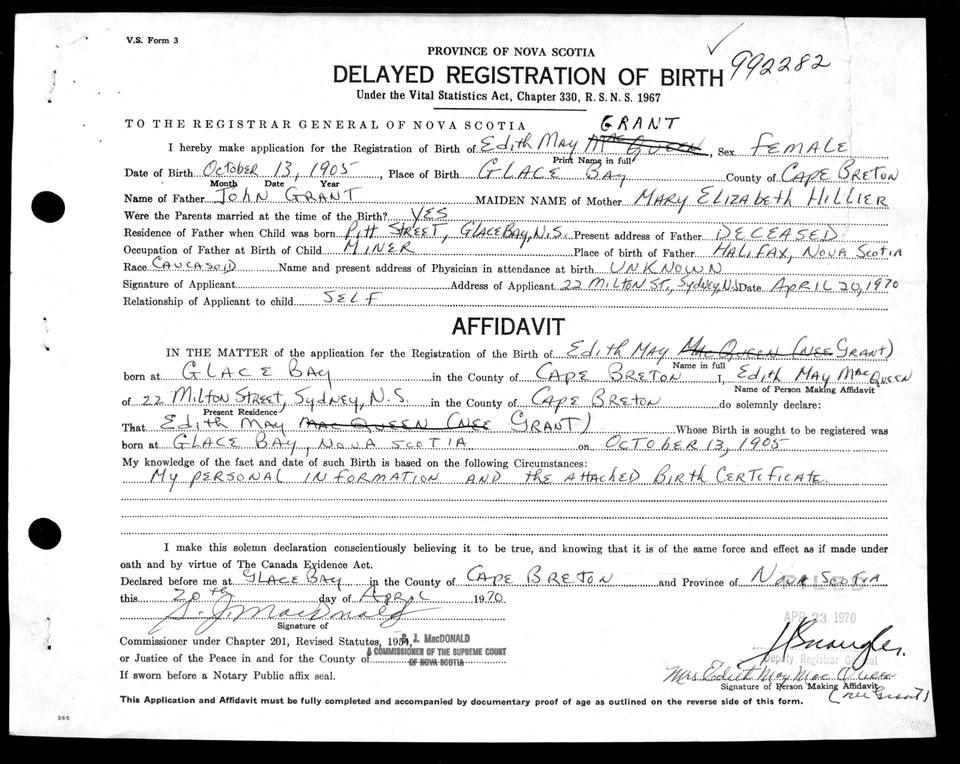 V.S. Form 3
992282
PROVINCE OF NOVA SCOTIA
DELAYED REGISTRATION OF BIRTH
Under the Vital Statistics Act, Chapter 330, R.S.N.S. 1967
TO THE REGISTRAR GENERAL OF NOVA SCOTIA
GRANT
I hereby make application for the Registration of Birth of Edith May Mac Queen, Sex FEMALE
Print Name in full
Date of Birth October 13, 1905, Place of Birth GLACE BAY County of CAPE BRETON
Month Date Year
Name of Father JOHN GRANT MAIDEN NAME of Mother MARY ELIZABETH HILLIER
Were the Parents married at the time of the Birth? YES
Residence of Father when Child was born Pitt STREET, GLACE BAY, N.S. Present address of Father DECEASED
Occupation of Father at Birth of Child MINER Place of birth of Father HALIFAX, NOVA SCOTIA
Race CAUCASOID Name and present address of Physician in attendance at birth UNKNOWN
Signature of Applicant Address of Applicant 22 MILTON ST., SYDNEY, N.S. Date APRIL 20, 1970
Relationship of Applicant to child SELF
AFFIDAVIT
IN THE MATTER of the application for the Registration of the Birth of Edith MAY Mac Queen (nee GRANT)
Name in full
born at GLACE BAY in the County of CAPE BRETON I, Edith MAY MacQUEEN
Name of Person Making Affidavit
of 22 MILTON STREET, SYDNEY, N.S. in the County of CAPE BRETON do solemnly declare:
Present Residence
That Edith MAY Mac Queen (nee GRANT) Whose Birth is sought to be registered was
born at GLACE BAY, NOVA SCOTIA on OCTOBER 13, 1905
My knowledge of the fact and date of such Birth is based on the following Circumstances:
MY PERSONAL INFORMATION AND the ATTACHED BIRTH CERTIFICATE
I make this solemn declaration conscientiously believing it to be true, and knowing that it is of the same force and effect as if made under
oath and by virtue of The Canada Evidence Act.
Declared before me at GLACE BAY in the County of CAPE BRETON and Province of NOVA SCOTIA
this 20th day of APRIL 1970
APR 23 1970
S. J. MacDonald
Signature of
Commissioner under Chapter 201, Revised Statutes, 1954,
J. MacDONALD
A COMMISSIONER OF THE SUPREME COURT
OF NOVA SCOTIA
or Justice of the Peace in and for the County of
Deputy Registrar General
If sworn before a Notary Public affix seal.
Mrs Edith May Mac Queen
Signature of Person Making Affidavit
(nee Grant)
This Application and Affidavit must be fully completed and accompanied by documentary proof of age as outlined on the reverse side of this form.
365